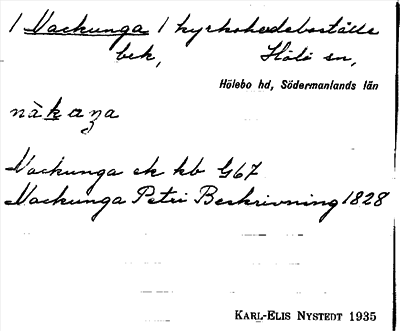 1 Vackunga 1 kyrkoherdeboställe
bek, Hölö sn,
Hölebo hd, Södermanlands län
nàkaŋa
Vackunga ek kb 1/4 67
Nackunga Petri Beskrivning 1828
KARL-ELIS NYSTEDT 1935